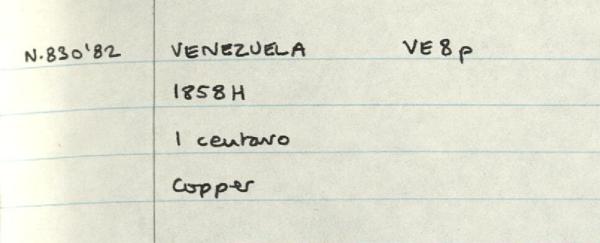 N.830'82 VENEZUELA VE8p
1858H
1 centavo
Copper